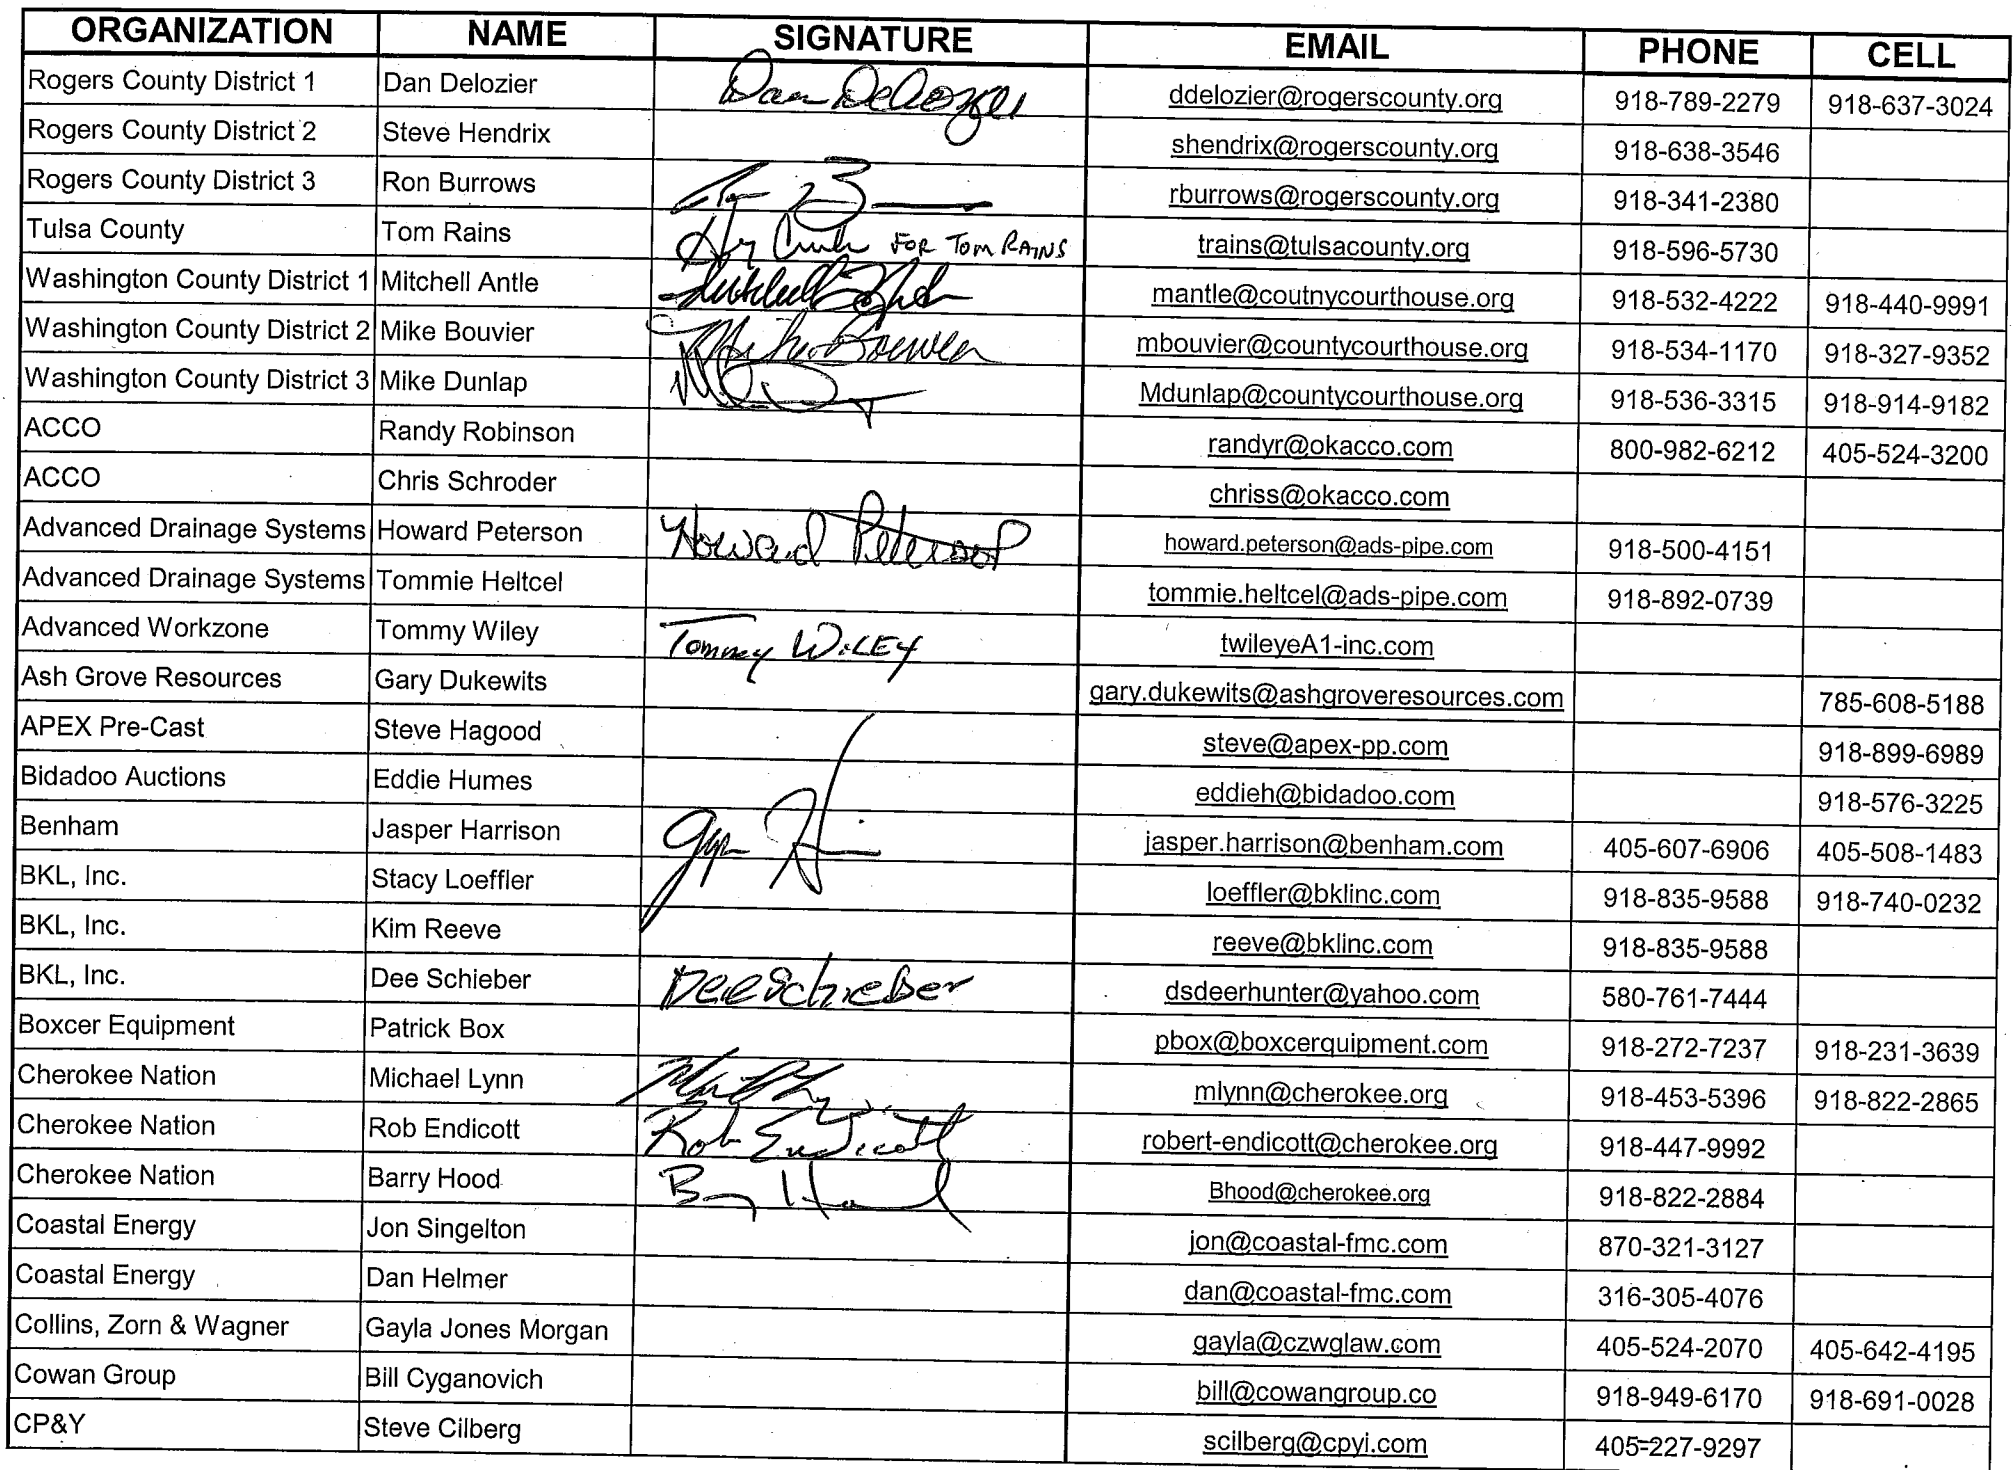 ORGANIZATION NAME SIGNATURE EMAIL PHONE CELL
Rogers County District 1 Dan Delozier Dan Delozier ddelozier@rogerscounty.org 918-789-2279 918-637-3024
Rogers County District 2 Steve Hendrix shendrix@rogerscounty.org 918-638-3546
Rogers County District 3 Ron Burrows rburrows@rogerscounty.org 918-341-2380
Tulsa County Tom Rains FOR TOM RAINS trains@tulsacounty.org 918-596-5730
Washington County District 1 Mitchell Antle mantle@coutnycourthouse.org 918-532-4222 918-440-9991
Washington County District 2 Mike Bouvier Mike Bouvier mbouvier@countycourthouse.org 918-534-1170 918-327-9352
Washington County District 3 Mike Dunlap Mdunlap@countycourthouse.org 918-536-3315 918-914-9182
ACCO Randy Robinson randyr@okacco.com 800-982-6212 405-524-3200
ACCO Chris Schroder chriss@okacco.com
Advanced Drainage Systems Howard Peterson Howard Peterson howard.peterson@ads-pipe.com 918-500-4151
Advanced Drainage Systems Tommie Heltcel tommie.heltcel@ads-pipe.com 918-892-0739
Advanced Workzone Tommy Wiley Tommy WiLEY twileyeA1-inc.com
Ash Grove Resources Gary Dukewits gary.dukewits@ashgroveresources.com 785-608-5188
APEX Pre-Cast Steve Hagood steve@apex-pp.com 918-899-6989
Bidadoo Auctions Eddie Humes eddieh@bidadoo.com 918-576-3225
Benham Jasper Harrison jasper.harrison@benham.com 405-607-6906 405-508-1483
BKL, Inc. Stacy Loeffler loeffler@bklinc.com 918-835-9588 918-740-0232
BKL, Inc. Kim Reeve reeve@bklinc.com 918-835-9588
BKL, Inc. Dee Schieber Dee Schieber dsdeerhunter@yahoo.com 580-761-7444
Boxcer Equipment Patrick Box pbox@boxcerquipment.com 918-272-7237 918-231-3639
Cherokee Nation Michael Lynn mlynn@cherokee.org 918-453-5396 918-822-2865
Cherokee Nation Rob Endicott Rob Endicott robert-endicott@cherokee.org 918-447-9992
Cherokee Nation Barry Hood Bhood@cherokee.org 918-822-2884
Coastal Energy Jon Singelton jon@coastal-fmc.com 870-321-3127
Coastal Energy Dan Helmer dan@coastal-fmc.com 316-305-4076
Collins, Zorn & Wagner Gayla Jones Morgan gayla@czwglaw.com 405-524-2070 405-642-4195
Cowan Group Bill Cyganovich bill@cowangroup.co 918-949-6170 918-691-0028
CP&Y Steve Cilberg scilberg@cpyi.com 405-227-9297